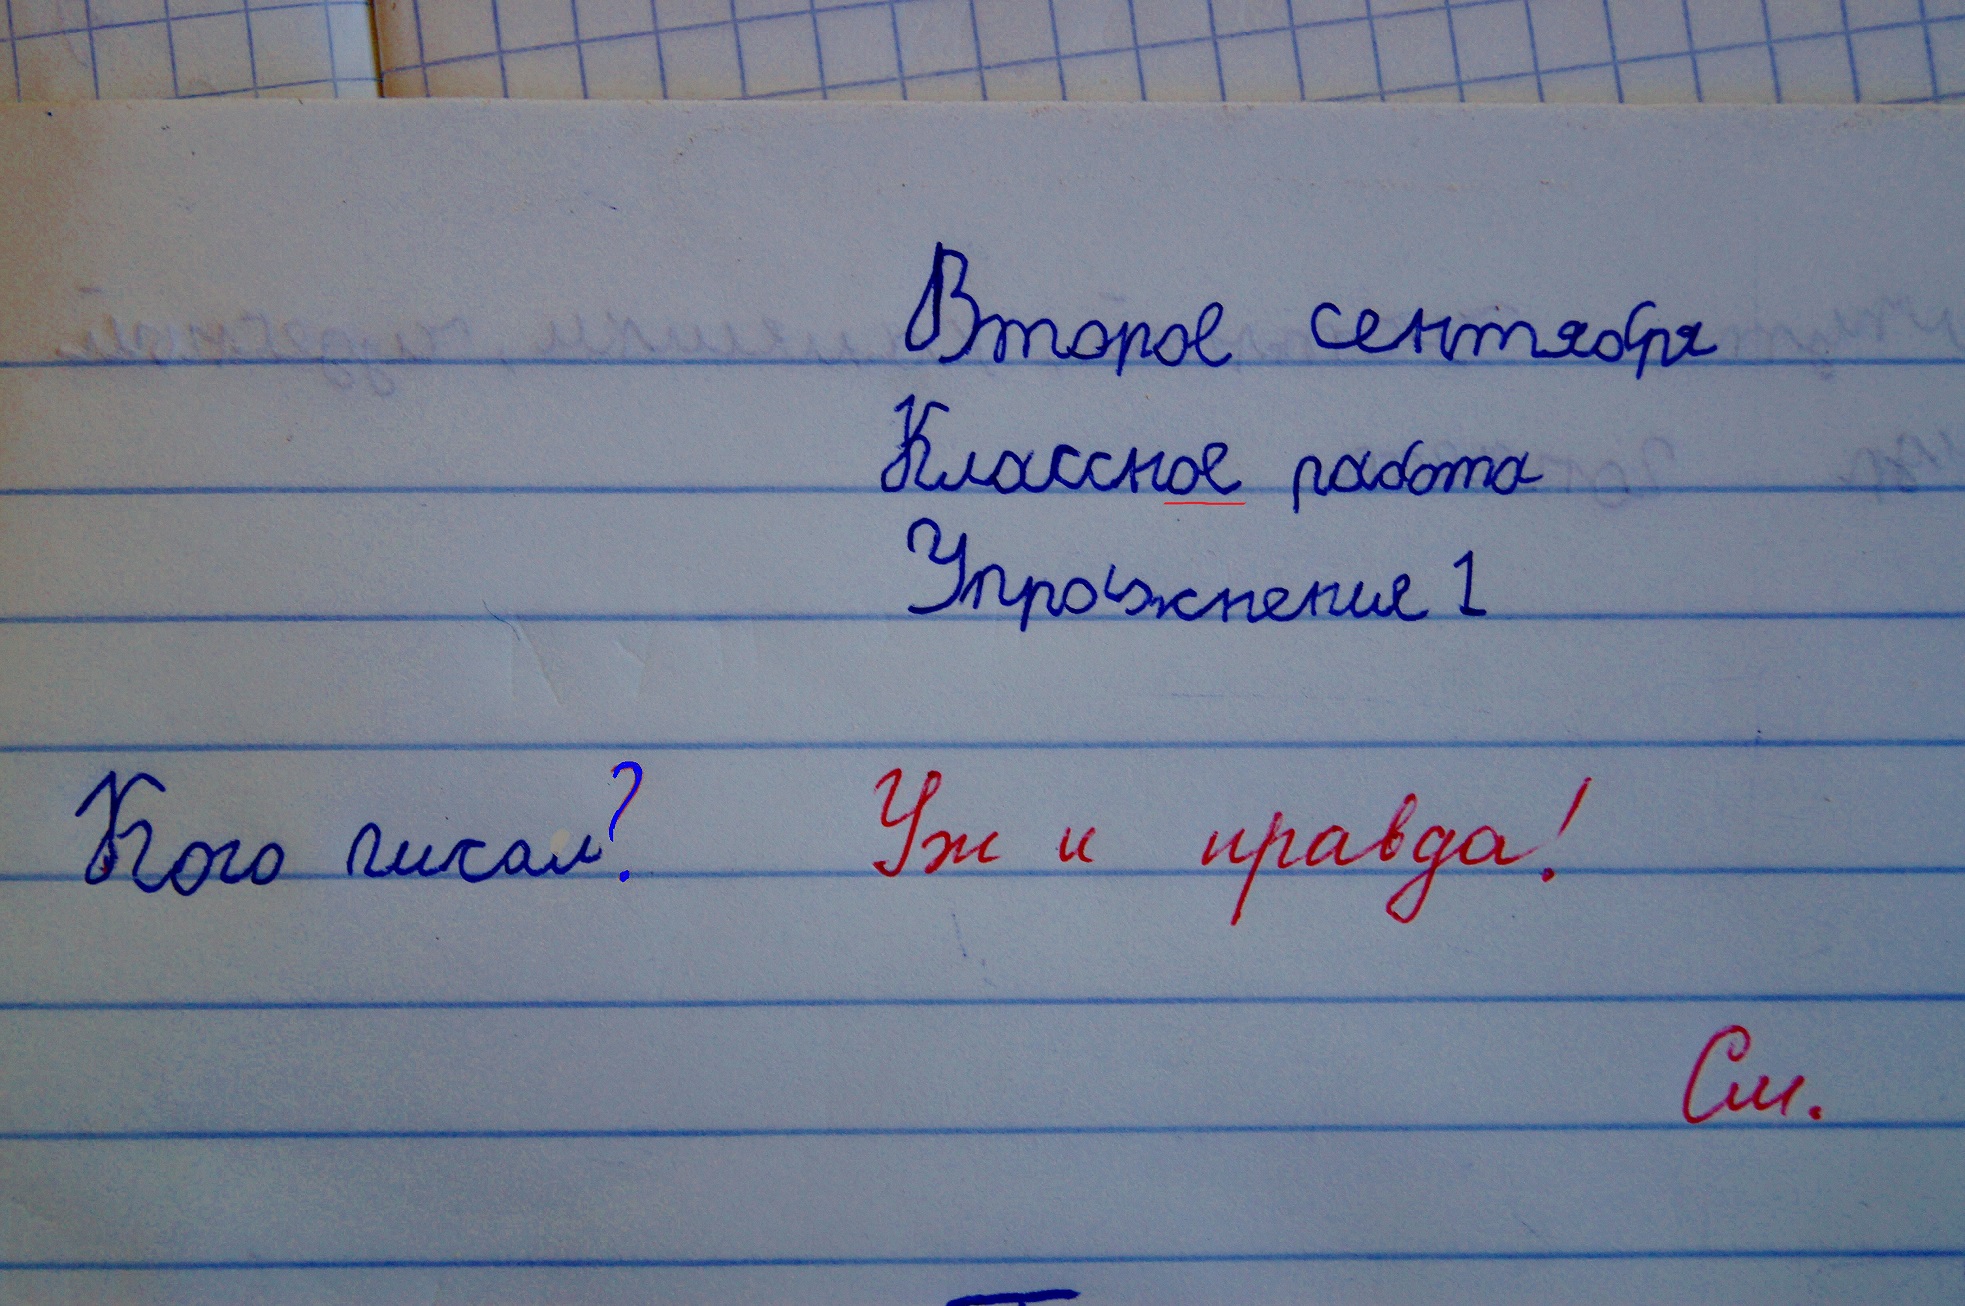 Второе сентября
Классное работа
Упражнение 1
Кого писал? Уж и правда!
См.